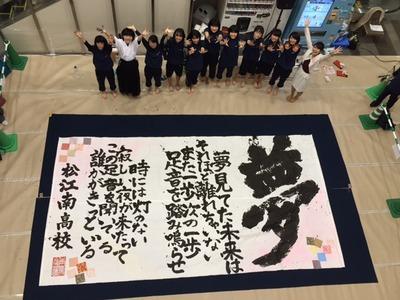 夢
夢見てた未来は
それほど離れちゃいない
また一歩次の一歩
足音を踏み鳴らせ
時には灯のない
寂しい夜が来たって
この足音を聞いてる
誰かがきっといる
松江南高校